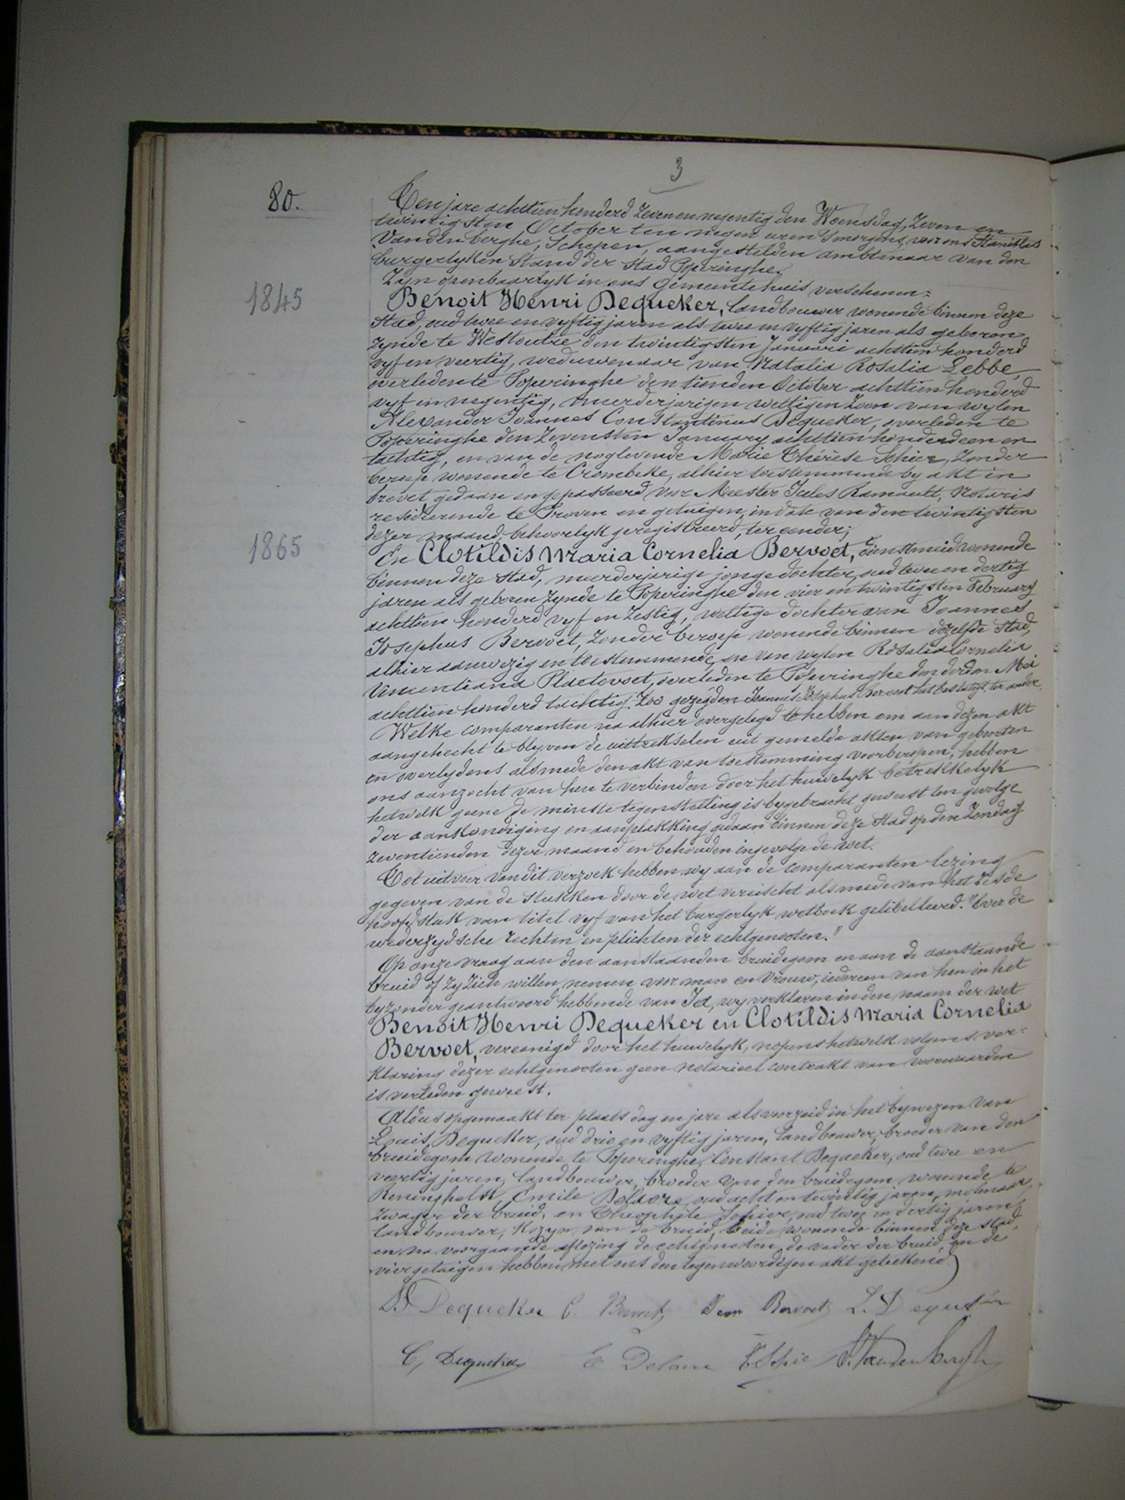 3
80.
Ten jare achttien honderd zeven en negentig den Woensdag, zeven en
twintigsten October ten negen uren 's morgens, voor ons Stanislas
Vanden Berghe, Schepen, aangestelden ambtenaar van den
burgerlyken Stand der Stad Poperinghe.
Zyn openbaarlyk in ons Gemeentehuis verschenen:
1845
Benoit Henri Dequeker, landbouwer wonende binnen deze
Stad, oud twee en vyftig jaren als twee en vyftig jaren als geboren
zynde te Westoutre den twintigsten Januari achttien honderd
vyf en veertig, weduwenaar van Natalia Rosalia Lebbe,
overleden te Poperinghe den tienden October achttien honderd
vyf en negentig, meerderjarigen wettigen zoon van wylen
Alexander Joannes Constantinus Dequeker, overleden te
Poperinghe den zevensten January achttien honderd een en
tachtig, en van de noglevende Marie Thérèse Schier, zonder
beroep wonende te Crombeke, alhier toestemmende by akt in
brevet gedaan en gepasseerd voor Meester Jules Ramault, Notaris
residerende te Proven en getuigen, in date van den twintigsten
dezer maand, behoorlyk geregistreerd, ter eender;
1865
En Clotildis Maria Cornelia Bervoet, dienstmeid wonende
binnen deze stad, meerderjarige jonge dochter, oud twee en dertig
jaren als geboren zynde te Poperinghe den vier en twintigsten February
achttien honderd vyf en zestig, wettige dochter van Joannes
Josephus Bervoet, zonder beroep wonende binnen dezelfde Stad,
alhier aanwezig en toestemmende, en van wylen Rosalia Cornelia
Vincentiana Plaetevoet, overleden te Poperinghe den derden Mei
achttien honderd tachtig. Zoo gezegden Joannes Josephus Bervoet het bevestigt, ter ander.
Welke comparanten na alhier overgelegd te hebben om aan dezen akt
aangehecht te blyven de uittrekselen uit gemelde akten van geboorten
en overlydens alsmede den akt van toestemming voorberoepen, hebben
ons aanzocht van hun te verbinden door het huwelyk betrekkelyk
hetwelk geene de minste tegenstelling is bygebracht geweest ten gevolge
der aankondiging en aanplakking gedaan binnen deze Stad op den Zondag
zeventienden dezer maand en behouden ingevolge de wet.
Tot uitvoer van dit verzoek hebben wy aan de comparanten lezing
gegeven van de stukken door de wet vereischt alsmede van het zesde
hoofdstuk van titel vyf van het burgerlyk wetboek gelibelleerd: "Over de
wederzydsche rechten en plichten der echtgenooten."
Op onze vraag aan den aanstaanden bruidegom en aan de aanstaande
bruid of zy zich willen nemen voor man en vrouw, iedereen van hen in het
byzonder geantwoord hebbende van Ja, wy verklaren in den naam der wet
Benoit Henri Dequeker en Clotildis Maria Cornelia
Bervoet, vereenigd door het huwelyk, nopens hetwelk volgens ver-
klaring dezer echtgenooten geen notarieel contrakt van voorwaarden
is verleden geweest.
Aldus opgemaakt ter plaats dag en jare als voorzeid in het bywezen van
Louis Dequeker, oud drie en vyftig jaren, landbouwer, broeder van den
bruidegom wonende te Poperinghe, Constant Dequeker, oud twee en
veertig jaren, landbouwer, broeder van den bruidegom wonende te
Reninghelst, Emile oud acht en twintig jaren, molenaar,
zwager der bruid, en Theophile Schier, oud twee en dertig jaren,
landbouwer, Kozyn van de bruid, beide wonende binnen deze stad,
en na voorgaande aflezing de echtgenooten, de vader der bruid, en de
vier getuigen hebben met ons den tegenwoordigen akt geteekend.
Dequeker C Bervoet Bervoet L. Dequeker
C, Dequeker E T Schier S. Vandenberghe